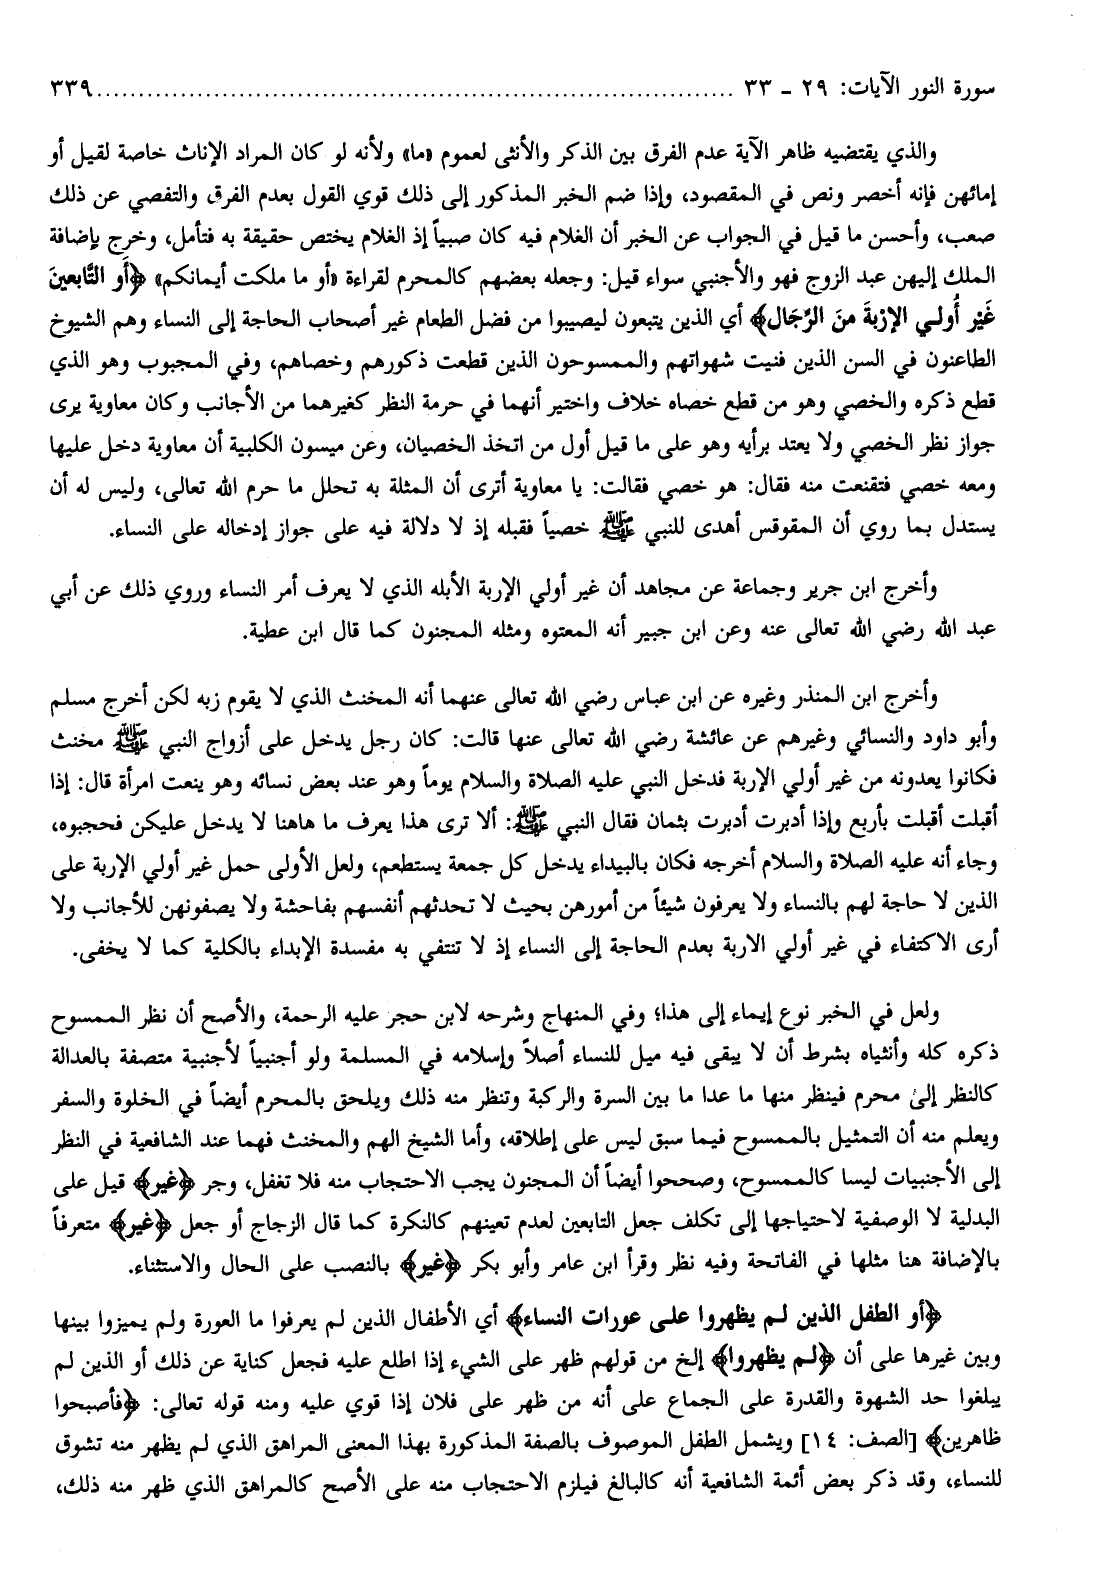 سورة النور الآيات: ٢٩ - ٣٣ ........................................................................... ٣٣٩
والذي يقتضيه ظاهر الآية عدم الفرق بين الذكر والأنثى لعموم «ما» ولأنه لو كان المراد الإناث خاصة لقيل أو
إمائهن فإنه أخصر ونص في المقصود، وإذا ضم الخبر المذكور إلى ذلك قوي القول بعدم الفرق والتفصي عن ذلك
صعب، وأحسن ما قيل في الجواب عن الخبر أن الغلام فيه كان صبياً إذ الغلام يختص حقيقة به فتأمل، وخرج بإضافة
الملك إليهن عبد الزوج فهو والأجنبي سواء قيل: وجعله بعضهم كالمحرم لقراءة «أو ما ملكت أيمانكم» ﴿أَو التَّابعينَ
غَيْر أُولي الإرْبةَ منَ الرِّجَال﴾ أي الذين يتبعون ليصيبوا من فضل الطعام غير أصحاب الحاجة إلى النساء وهم الشيوخ
الطاعنون في السن الذين فنيت شهواتهم والممسوحون الذين قطعت ذكورهم وخصاهم، وفي المجبوب وهو الذي
قطع ذكره والخصي وهو من قطع خصاه خلاف واختير أنهما في حرمة النظر كغيرهما من الأجانب وكان معاوية يرى
جواز نظر الخصي ولا يعتد برأيه وهو على ما قيل أول من اتخذ الخصيان، وعن ميسون الكلبية أن معاوية دخل عليها
ومعه خصي فتقنعت منه فقال: هو خصي فقالت: يا معاوية أترى أن المثلة به تحلل ما حرم الله تعالى، وليس له أن
يستدل بما روي أن المقوقس أهدى للنبي ﷺ خصياً فقبله إذ لا دلالة فيه على جواز إدخاله على النساء.
وأخرج ابن جرير وجماعة عن مجاهد أن غير أولي الإربة الأبله الذي لا يعرف أمر النساء وروي ذلك عن أبي
عبد الله رضي الله تعالى عنه وعن ابن جبير أنه المعتوه ومثله المجنون كما قال ابن عطية.
وأخرج ابن المنذر وغيره عن ابن عباس رضي الله تعالى عنهما أنه المخنث الذي لا يقوم زبه لكن أخرج مسلم
وأبو داود والنسائي وغيرهم عن عائشة رضي الله تعالى عنها قالت: كان رجل يدخل على أزواج النبي ﷺ مخنث
فكانوا يعدونه من غير أولي الإربة فدخل النبي عليه الصلاة والسلام يوماً وهو عند بعض نسائه وهو ينعت امرأة قال: إذا
أقبلت أقبلت بأربع وإذا أدبرت أدبرت بثمان فقال النبي ﷺ: ألا ترى هذا يعرف ما هاهنا لا يدخل عليكن فحجبوه،
وجاء أنه عليه الصلاة والسلام أخرجه فكان بالبيداء يدخل كل جمعة يستطعم، ولعل الأولى حمل غير أولي الإربة على
الذين لا حاجة لهم بالنساء ولا يعرفون شيئاً من أمورهن بحيث لا تحدثهم أنفسهم بفاحشة ولا يصفونهن للأجانب ولا
أرى الاكتفاء في غير أولي الاربة بعدم الحاجة إلى النساء إذ لا تنتفي به مفسدة الإبداء بالكلية كما لا يخفى.
ولعل في الخبر نوع إيماء إلى هذا؛ وفي المنهاج وشرحه لابن حجر عليه الرحمة، والأصح أن نظر الممسوح
ذكره كله وأنثياه بشرط أن لا يبقى فيه ميل للنساء أصلاً وإسلامه في المسلمة ولو أجنبياً لأجنبية متصفة بالعدالة
كالنظر إلى محرم فينظر منها ما عدا ما بين السرة والركبة وتنظر منه ذلك ويلحق بالمحرم أيضاً في الخلوة والسفر
ويعلم منه أن التمثيل بالممسوح فيما سبق ليس على إطلاقه، وأما الشيخ الهم والمخنث فهما عند الشافعية في النظر
إلى الأجنبيات ليسا كالممسوح، وصححوا أيضاً أن المجنون يجب الاحتجاب منه فلا تغفل، وجر ﴿غير﴾ قيل على
البدلية لا الوصفية لاحتياجها إلى تكلف جعل التابعين لعدم تعينهم كالنكرة كما قال الزجاج أو جعل ﴿غير﴾ متعرفاً
بالإضافة هنا مثلها في الفاتحة وفيه نظر وقرأ ابن عامر وأبو بكر ﴿غير﴾ بالنصب على الحال والاستثناء.
﴿أو الطفل الذين لم يظهروا على عورات النساء﴾ أي الأطفال الذين لم يعرفوا ما العورة ولم يميزوا بينها
وبين غيرها على أن ﴿لم يظهروا﴾ إلخ من قولهم ظهر على الشيء إذا اطلع عليه فجعل كناية عن ذلك أو الذين لم
يبلغوا حد الشهوة والقدرة على الجماع على أنه من ظهر على فلان إذا قوي عليه ومنه قوله تعالى: ﴿فأصبحوا
ظاهرين﴾ [الصف: ١٤] ويشمل الطفل الموصوف بالصفة المذكورة بهذا المعنى المراهق الذي لم يظهر منه تشوق
للنساء، وقد ذكر بعض أئمة الشافعية أنه كالبالغ فيلزم الاحتجاب منه على الأصح كالمراهق الذي ظهر منه ذلك،